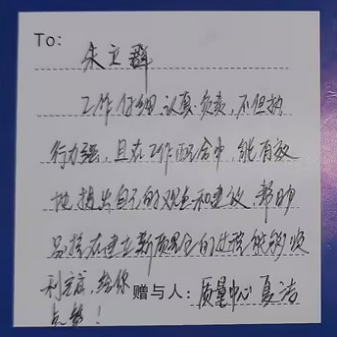 To:
朱立群
工作仔细认真负责,不但执
行力强,且在工作配合中,能有效
地提出自己的观点和建议,帮助
品控在建立新质量仓的过程能够顺
利完成,给你
点赞!
赠与人:质量中心 夏洁